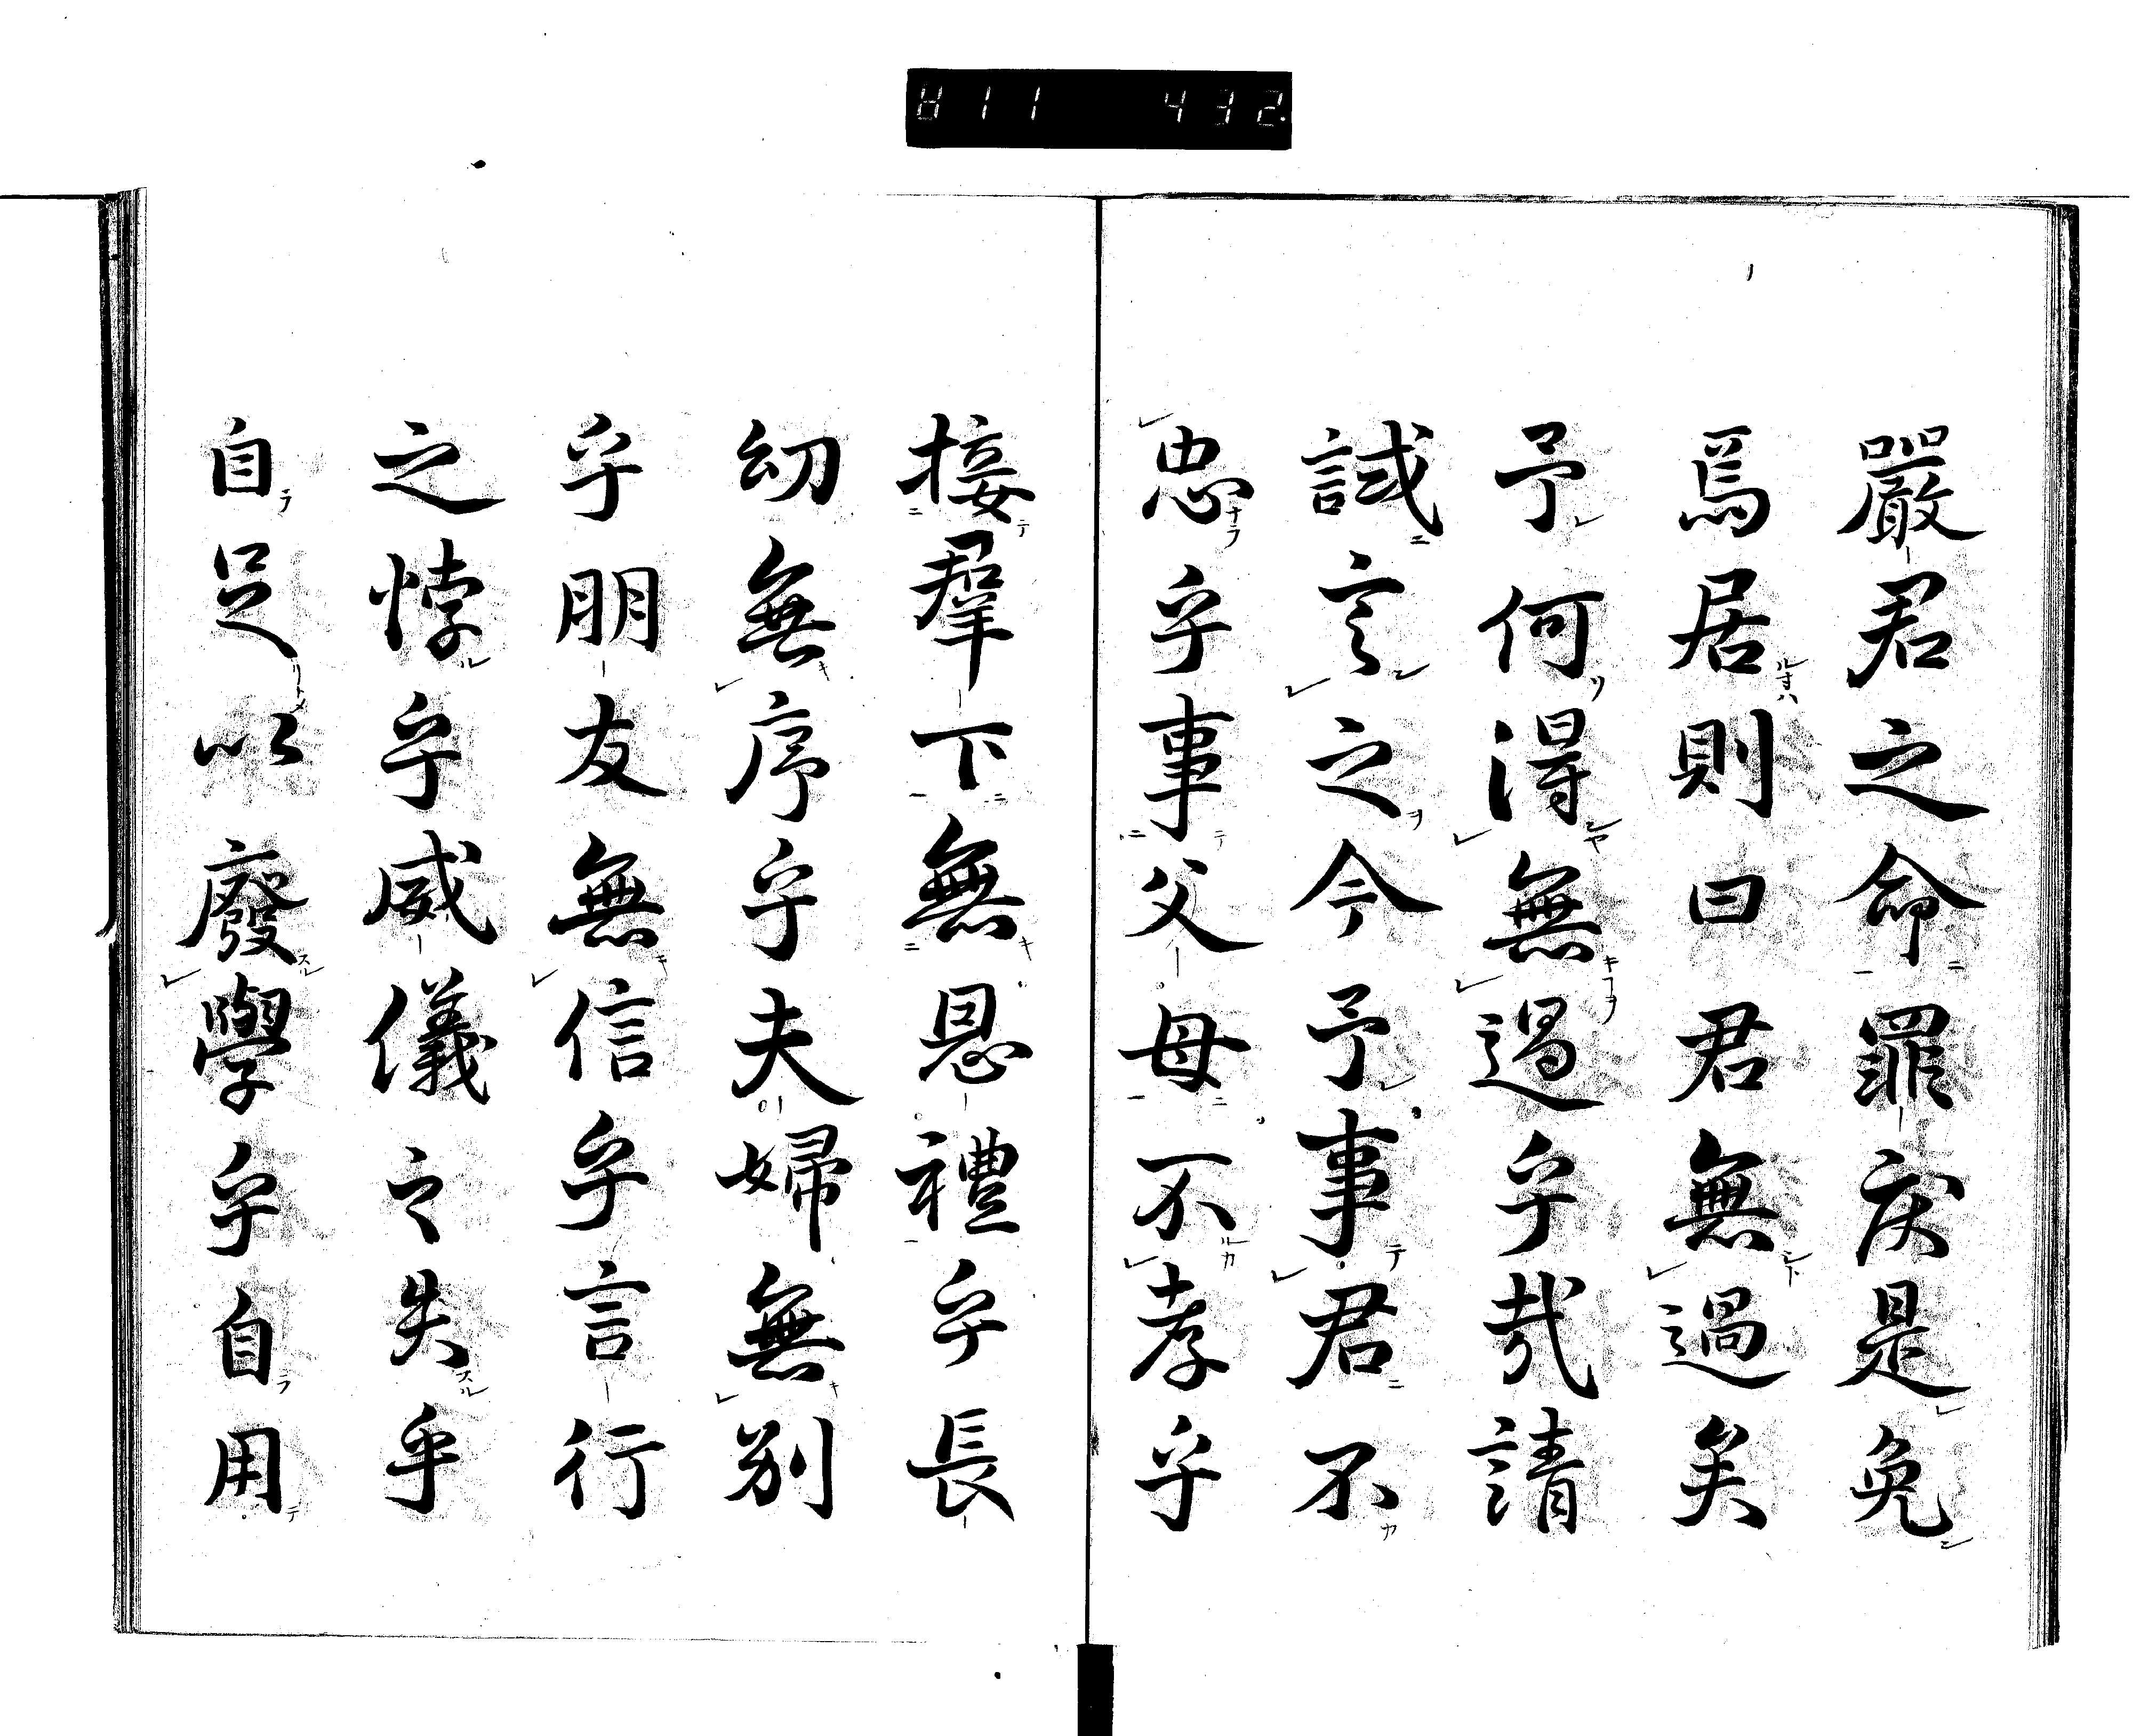 811 432.
嚴君之命罪戻是免
焉居則曰君無過矣
予何得無過乎哉請
試言之今予事君不
忠乎事父母不孝乎
接羣下無恩禮乎長
幼無序乎夫婦無別
乎朋友無信乎言行
之悖乎威儀之失乎
自足以廢學乎自用